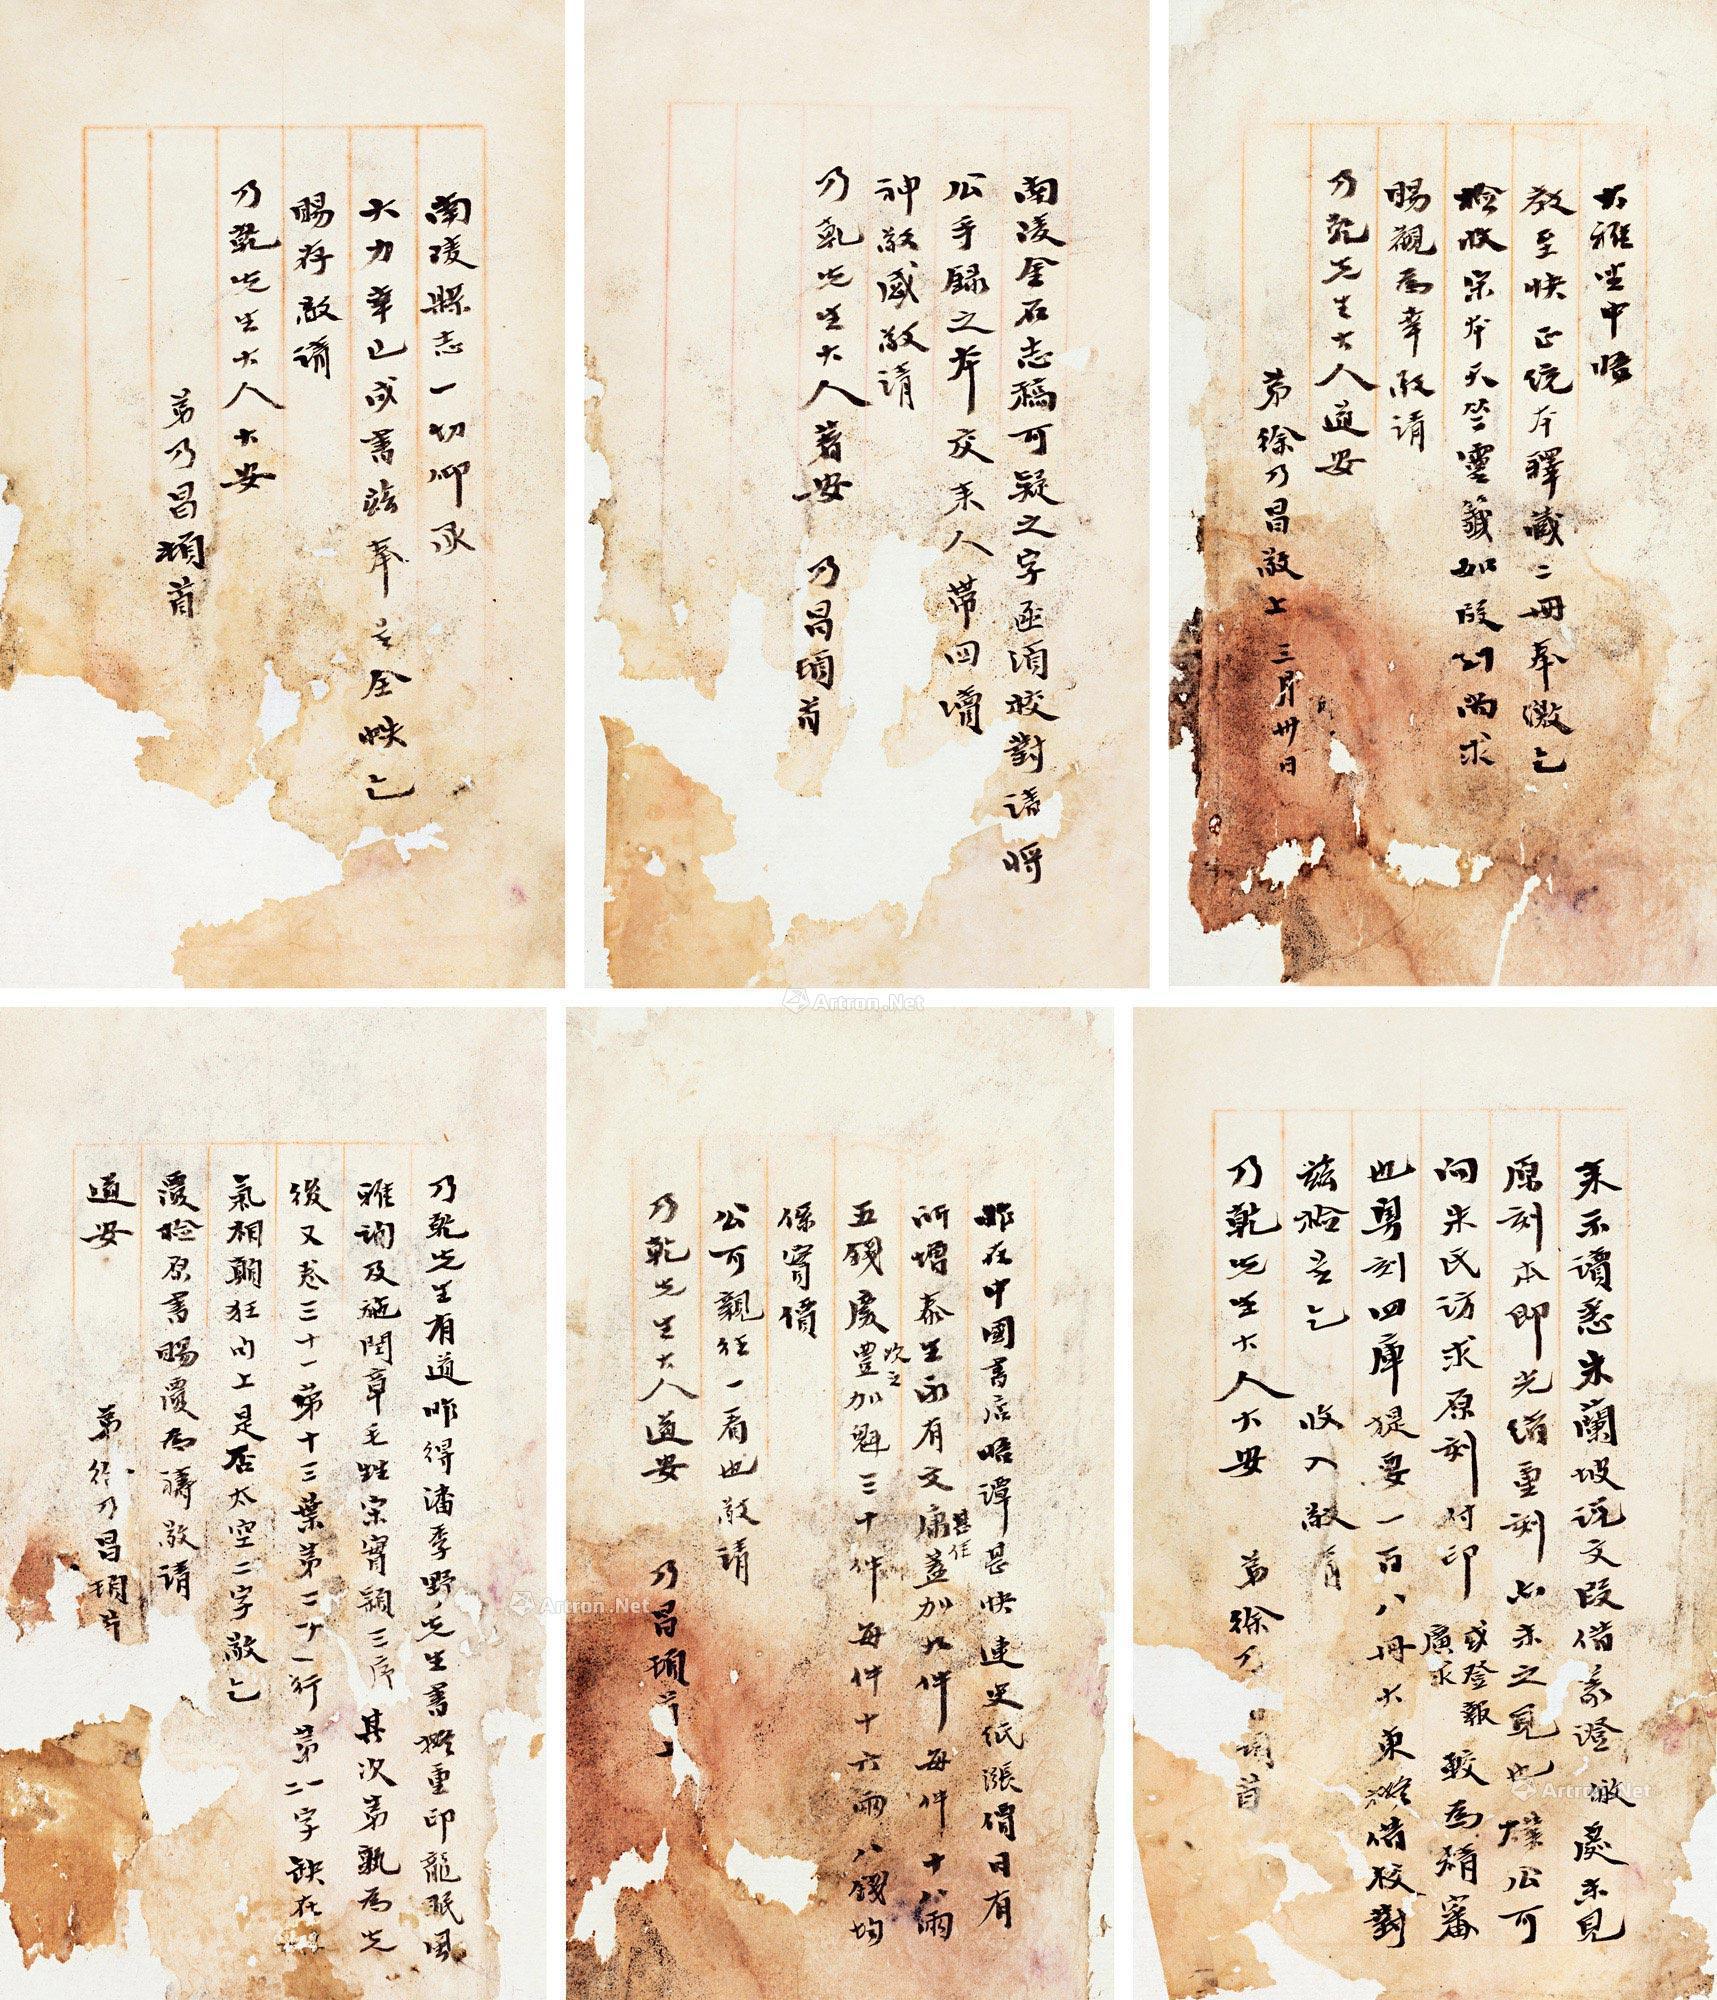 南陵縣志一切仰承
大力幸已成書茲奉呈全帙乞
賜存敬請
乃乾先生大人大安
弟乃昌頓首
南陵金石志稿可疑之字亟須校對請將
公手錄之本交來人帶回瀆
神敬感敬請
乃乾先生大人著安 乃昌頓首
大雅坐中晤
教至快正統本釋藏二冊奉繳乞
檢收宋本天竺靈籤如段到尚求
賜觀為幸敬請
乃乾先生大人道安
弟徐乃昌敬上 三月卅日
乃乾先生有道昨得潘季野先生書擬重印龍眠風
雅詢及施閏章毛甡宋實穎三序其次第孰為先
後又卷三十一第十三葉第二十一行第二字缺在
氣相朝狂內上是否太空二字敬乞
覆檢原書賜覆為禱敬請
道安
弟徐乃昌頓首
昨在中國書店晤譚甚快連史紙漲價日有
所增泰生聞有文庸蓋加九件每件十八兩
甚佳
五錢廣豐加魁三十件每件十六兩八錢均
次之
係實價
公可親往一看也敬請
乃乾先生大人道安 乃昌頓首
來示讀悉朱蘭坡說文叚借義證敝處未見
原刻本即光緒重刻亦未之見也 公可
向朱氏訪求原刻付印或登報廣求較為精審
也粵刻四庫提要一百八冊大東擬借校對
茲檢呈乞 收入敬請
乃乾先生大人大安 弟徐乃昌頓首
Artron.Net
Artron.Net
Artron.Net